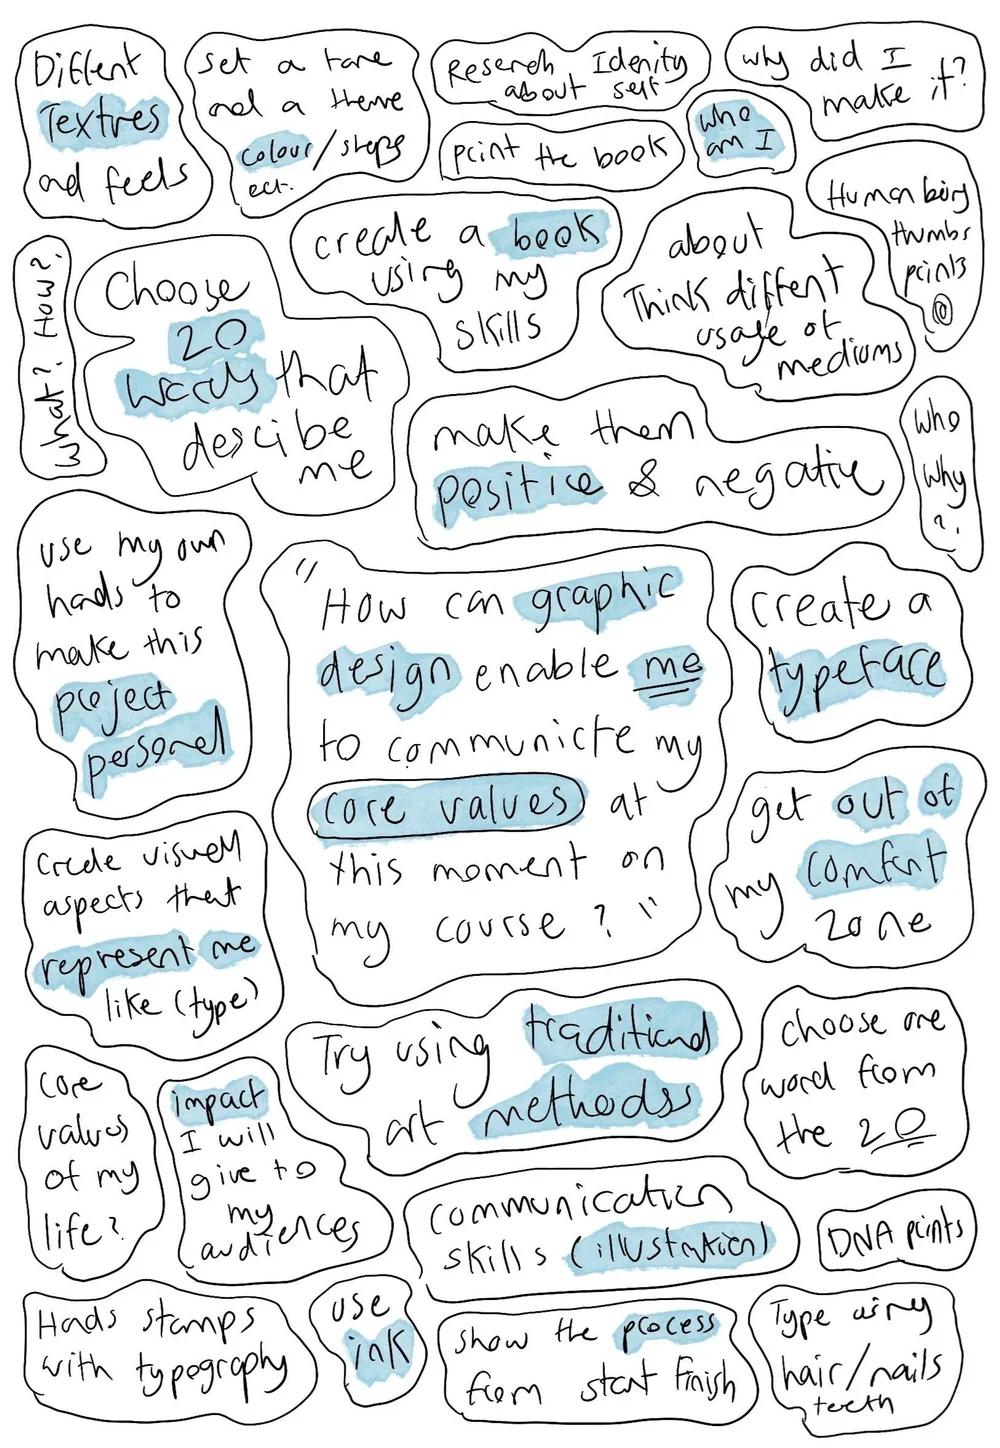 Diffent
Textres
and feels
Set a tone
and a theme
colour/steps
ect.
Reserch Idenity
about self
why did I
make it?
who
am I
print the book
Human being
thumbs
prints
What? How?
Choose
20
words that
descibe
me
create a book
using my
skills
about
Think diffent
usage of
mediums
make them
positive & negative
who
why
?
use my own
hands to
make this
project
personal
"
How can graphic
design enable me
to communicte my
core values at
this moment on
my course ? "
create a
typeface
get out of
my comfort
zone
Create visuall
aspects that
represent me
like (type)
Try using traditional
art methodss
choose one
word from
the 20
core
values
of my
life?
impact
I will
give to
my
audiences
communication
skills (illustration)
DNA prints
Hands stamps
with typography
use
ink
show the process
from start finish
Type using
hair/nails
teeth